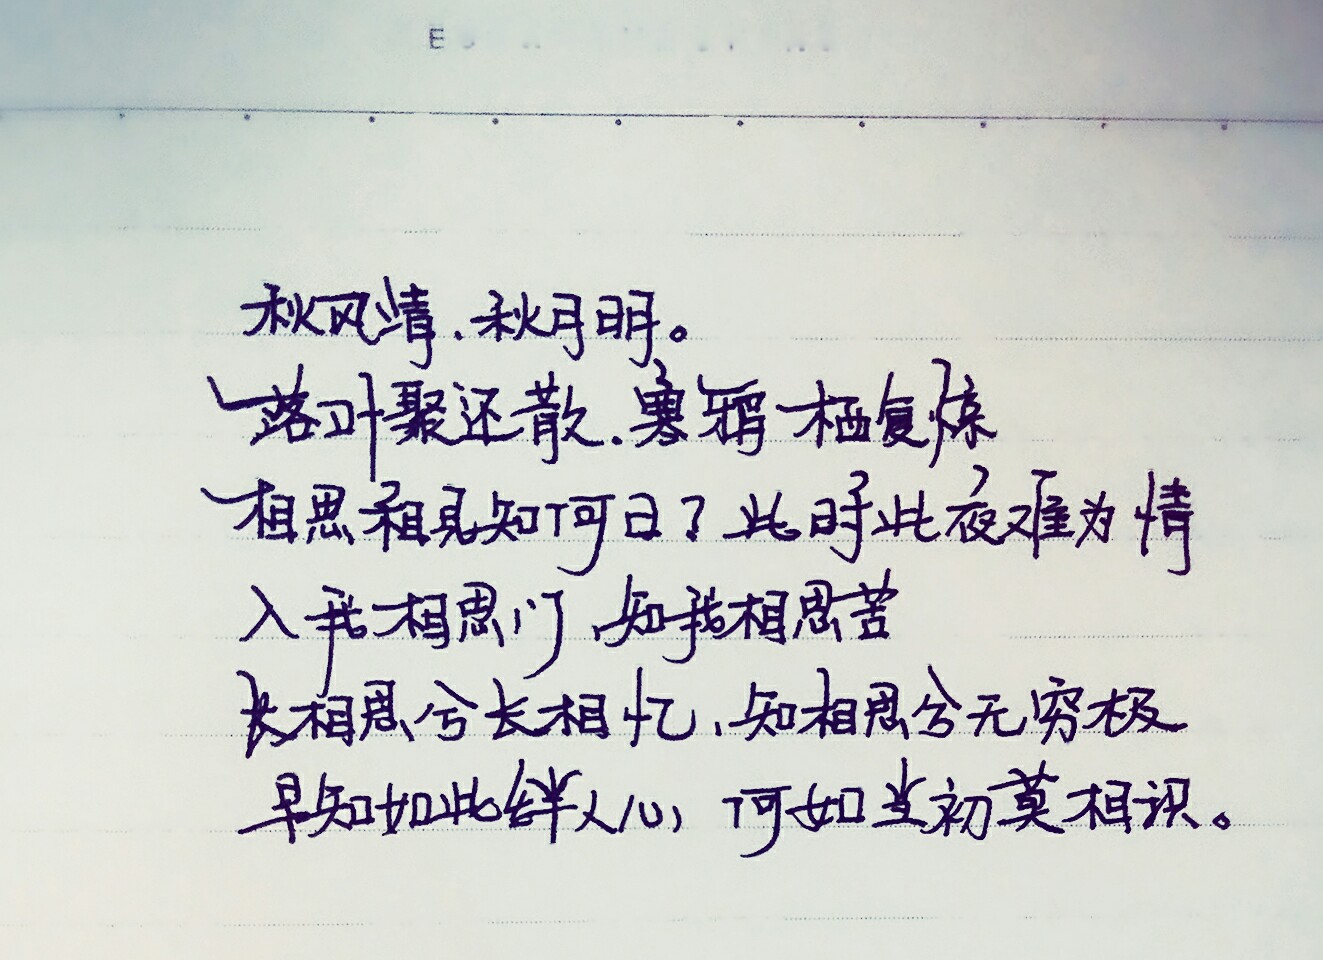 E
秋风清,秋月明。
落叶聚还散,寒鸦栖复惊
相思相见知何日?此时此夜难为情
入我相思门,知我相思苦
长相思兮长相忆,知相思兮无穷极
早知如此绊人心,何如当初莫相识。